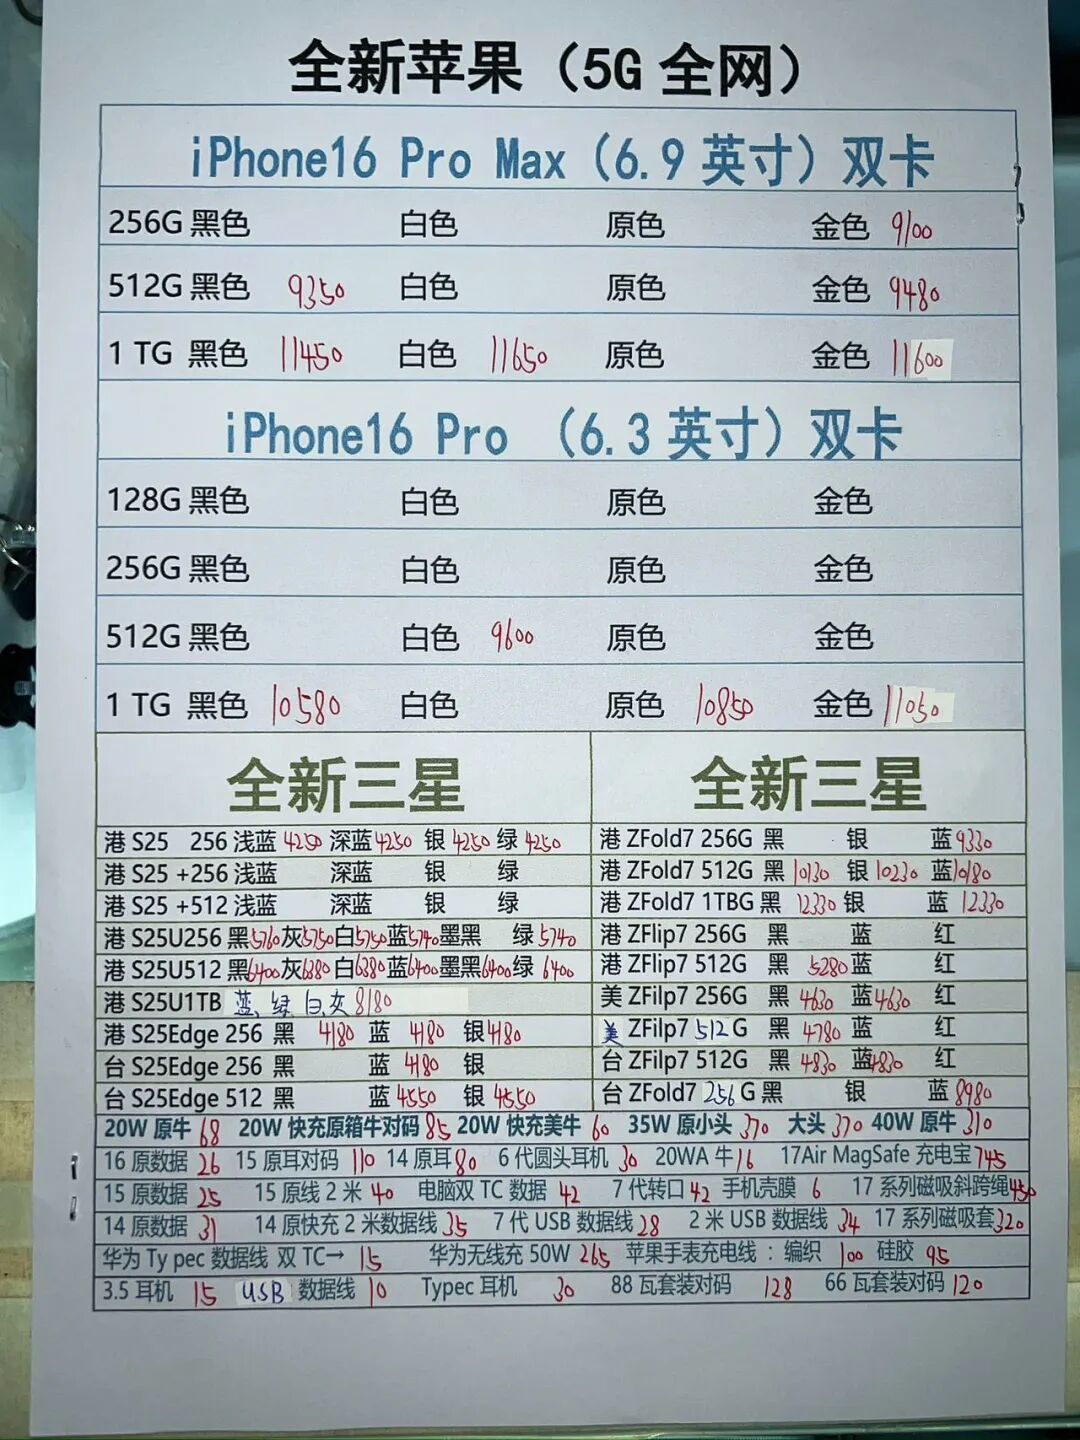 全新苹果（5G 全网）
iPhone16 Pro Max（6.9 英寸）双卡
256G 黑色 白色 原色 金色 9100
512G 黑色 9350 白色 原色 金色 9480
1 TG 黑色 11450 白色 11650 原色 金色 11600
iPhone16 Pro （6.3 英寸）双卡
128G 黑色 白色 原色 金色
256G 黑色 白色 原色 金色
512G 黑色 白色 9600 原色 金色
1 TG 黑色 10580 白色 原色 10850 金色 11050
全新三星 全新三星
港 S25 256 浅蓝 4250 深蓝 4250 银 4250 绿 4250 港 ZFold7 256G 黑 银 蓝 9330
港 S25 +256 浅蓝 深蓝 银 绿 港 ZFold7 512G 黑 10130 银 10230 蓝 10180
港 S25 +512 浅蓝 深蓝 银 绿 港 ZFold7 1TBG 黑 12330 银 蓝 12330
港 S25U256 黑 5760 灰 5750 白 5750 蓝 5740 墨黑 绿 5740 港 ZFlip7 256G 黑 蓝 红
港 S25U512 黑 6400 灰 6380 白 6380 蓝 6400 墨黑 6400 绿 6400 港 ZFlip7 512G 黑 5280 蓝 红
港 S25U1TB 蓝、绿 白、灰 8180 美 ZFilp7 256G 黑 4630 蓝 4630 红
港 S25Edge 256 黑 4180 蓝 4180 银 4180 美 ZFilp7 512 G 黑 4780 蓝 红
台 S25Edge 256 黑 蓝 4180 银 台 ZFilp7 512G 黑 4830 蓝 4830 红
台 S25Edge 512 黑 蓝 4550 银 4550 台 ZFold7 256 G 黑 银 蓝 8980
20W 原牛 68 20W 快充原箱牛对码 85 20W 快充美牛 60 35W 原小头 370 大头 370 40W 原牛 310
16 原数据 26 15 原耳对码 110 14 原耳 80 6 代圆头耳机 30 20WA 牛 16 17Air MagSafe 充电宝 745
15 原数据 25 15 原线 2 米 40 电脑双 TC 数据 42 7 代转口 42 手机壳膜 6 17 系列磁吸斜跨绳 450
14 原数据 31 14 原快充 2 米数据线 35 7 代 USB 数据线 28 2 米 USB 数据线 34 17 系列磁吸套 320
华为 Ty pec 数据线 双 TC→ 15 华为无线充 50W 265 苹果手表充电线 ：编织 100 硅胶 95
3.5 耳机 15 USB 数据线 10 Typec 耳机 30 88 瓦套装对码 128 66 瓦套装对码 120